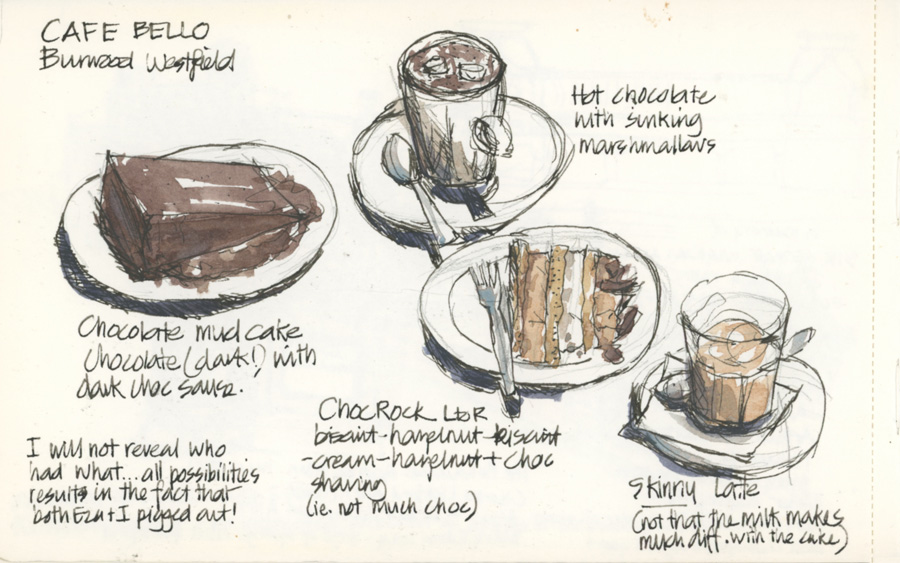 CAFE BELLO
Burwood Westfield
Hot chocolate
with sinking
marshmallows
Chocolate mud cake
Chocolate (dark!) with
dark choc sauce.
I will not reveal who
had what...all possibilities
results in the fact that
both Eza + I pigged out!
CHOCROCK L to R
biscuit-hazelnut-biscuit
-cream-hazelnut + choc
shaving
(ie. not much choc)
Skinny Latte
(not that the milk makes
much diff. with the cake)